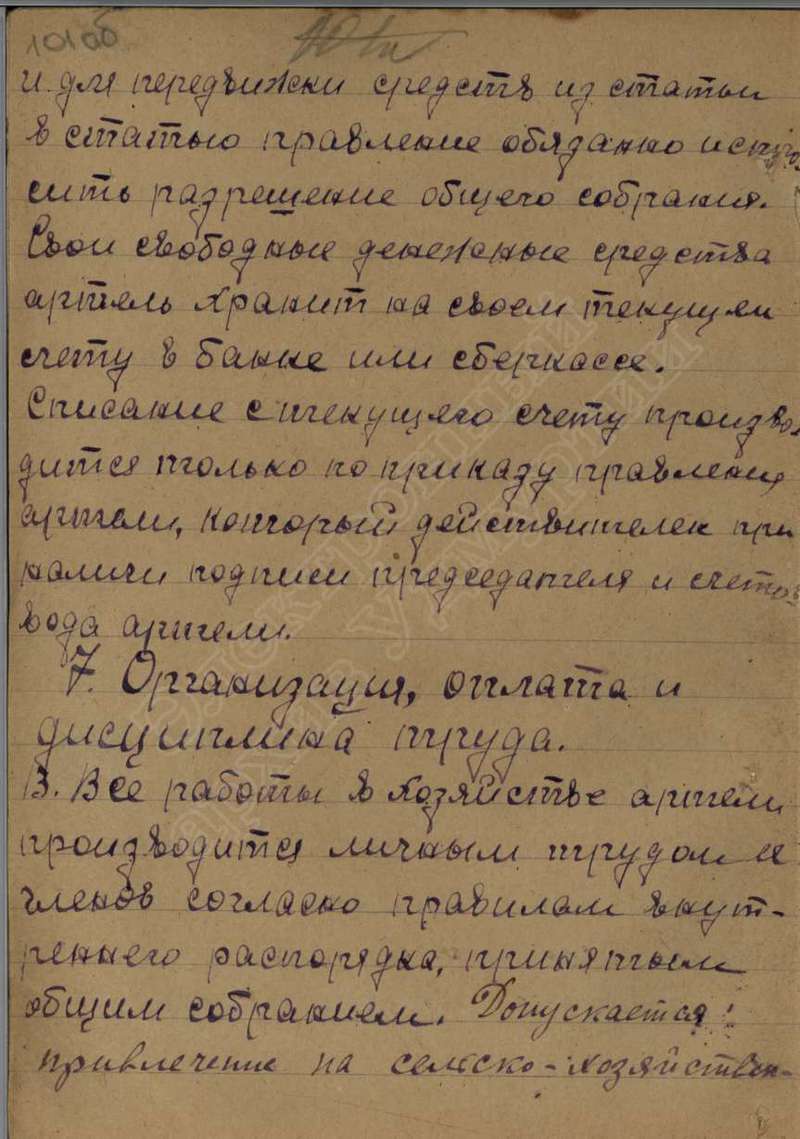 10 об
и для передвижки средств из статьи
в статью правление обязанно испро
сить разрешение общего собрания.
Свои свободные денежные средства
артель хранит на своем текущем
счету в банке или сберкассе.
Списание с текущего счету произво
дится только по приказу правления
артели, который действителен при
наличи подписи председателя и счето
вода артели.
7. Организация, оплата и
дисциплина труда.
13. Все работы в хозяйстве артели
производится личным трудом ее
членов согласно правилам внут-
реннего распорядка, принятым
общим собранием. Допускается
привлечение на сельско-хозяйствен-